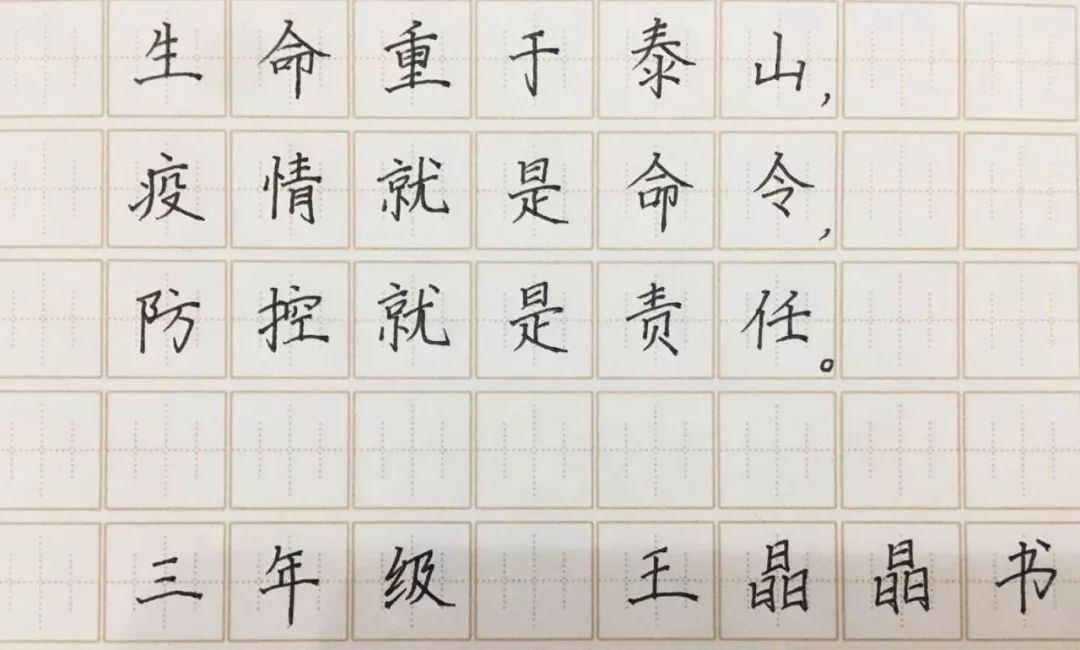 生命重于泰山,
疫情就是命令,
防控就是责任。
三年级 王晶晶书